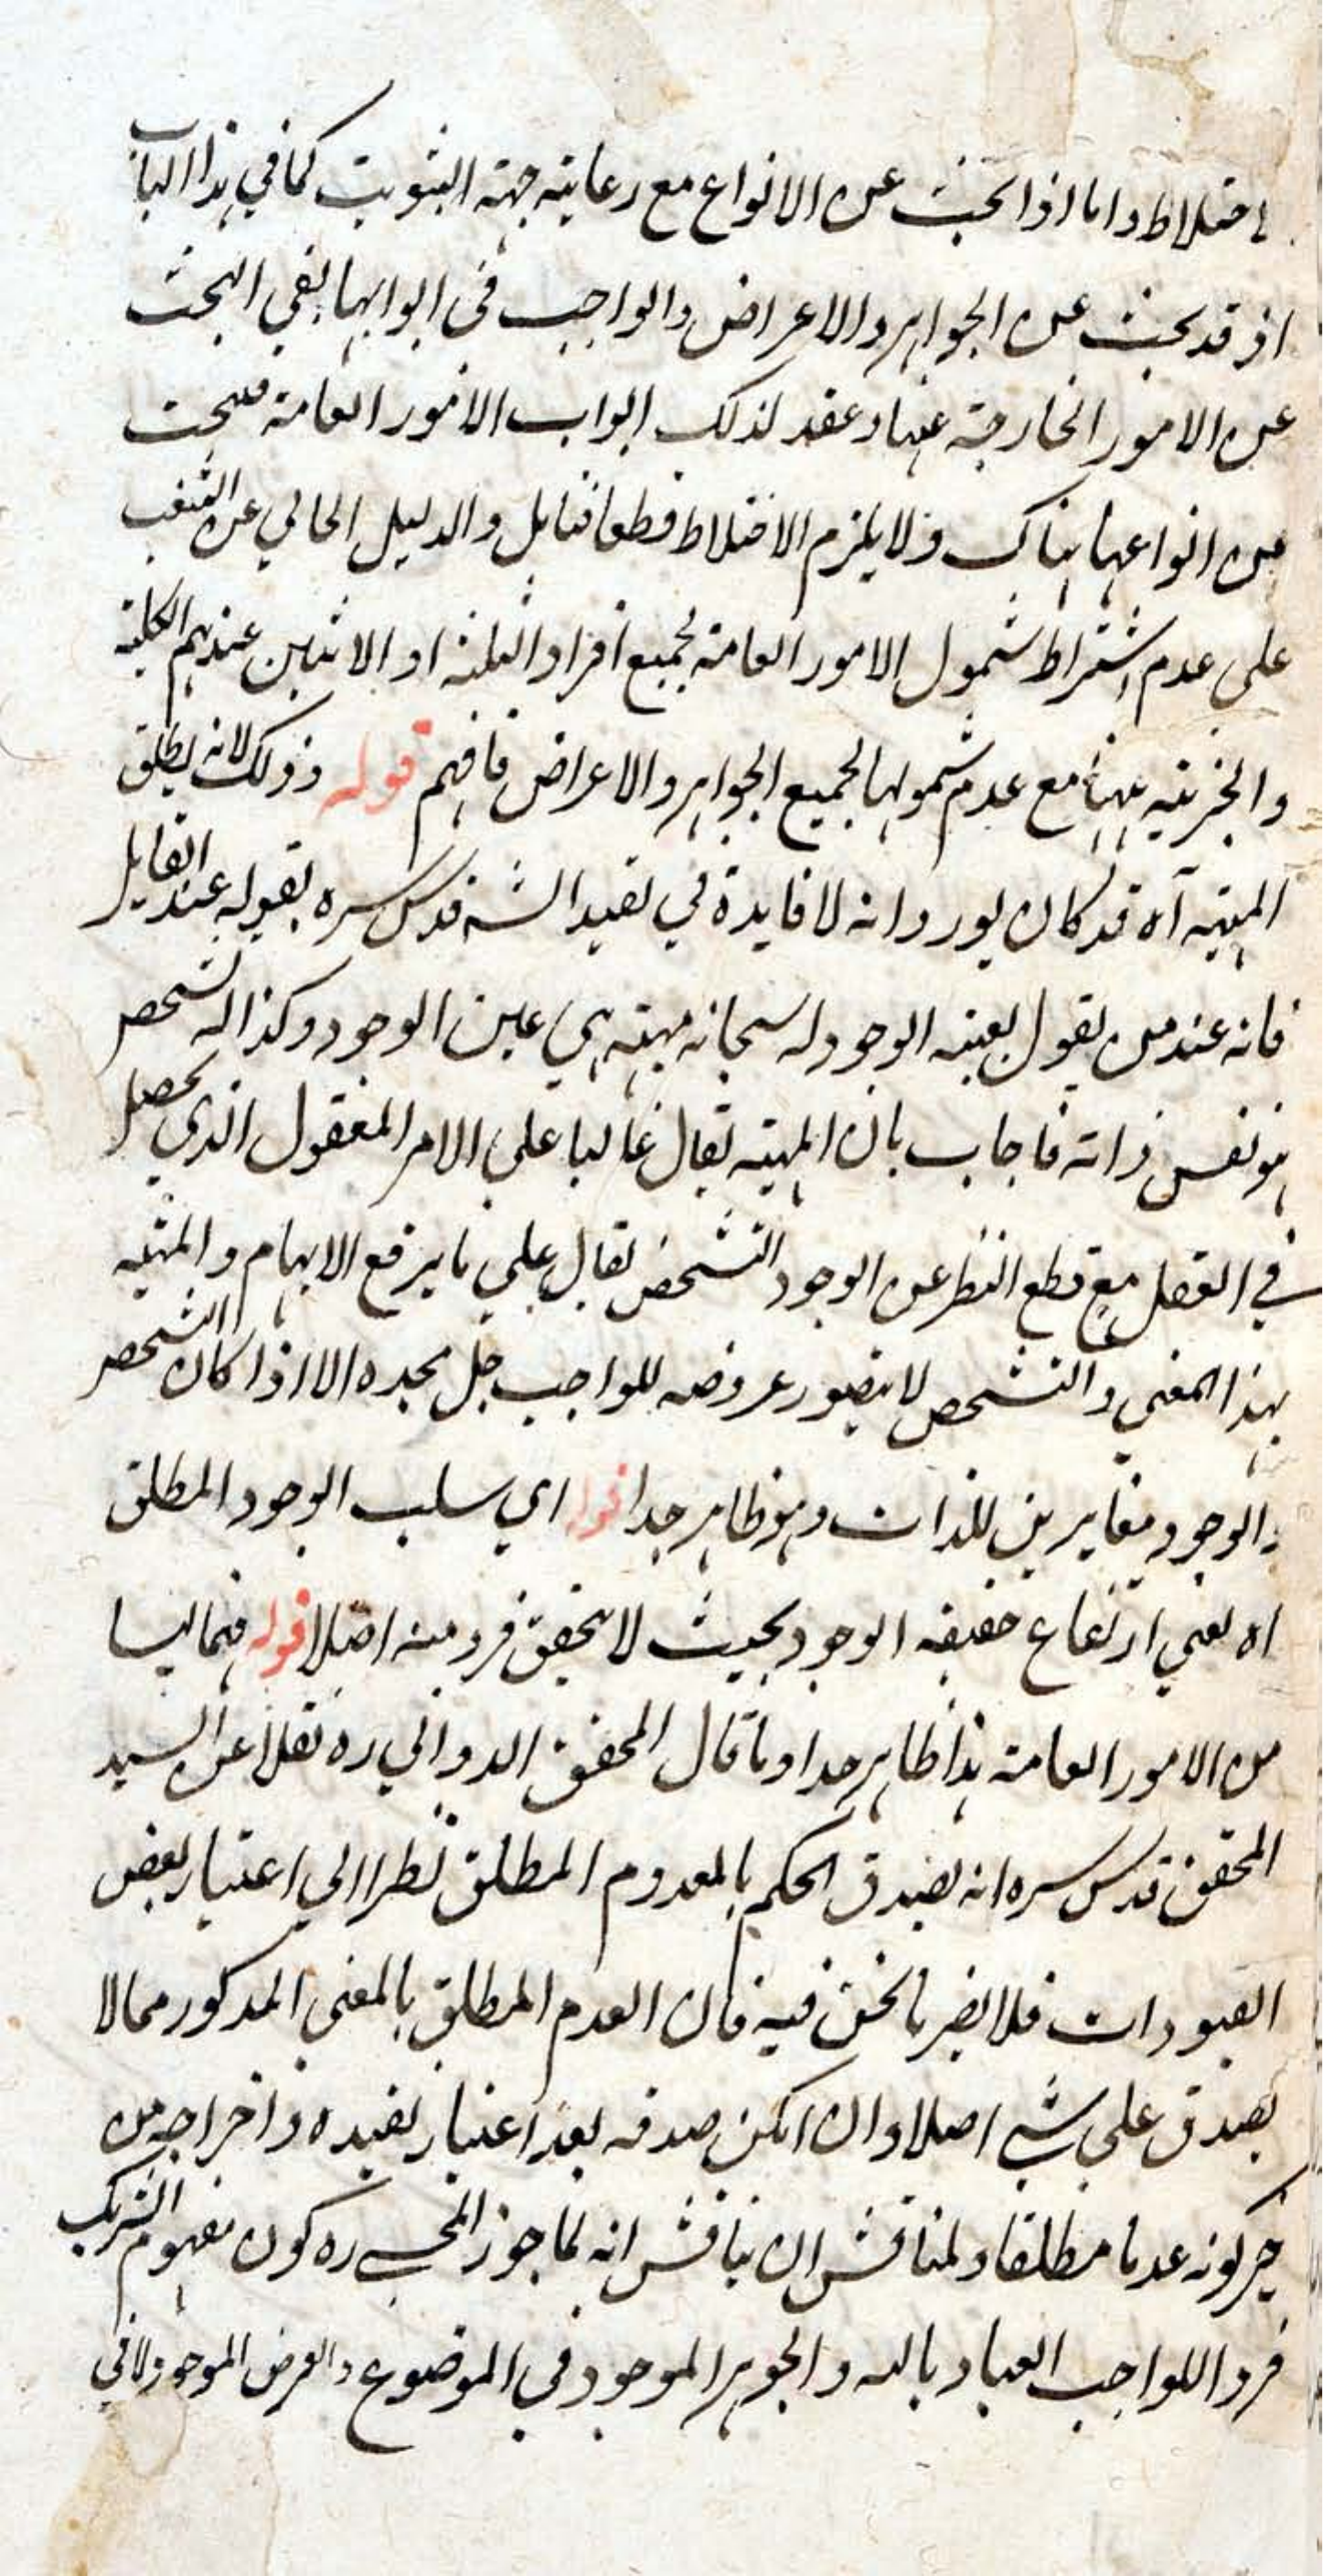 الاختلاط واما اذا بحث عن الانواع مع رعاية جهة الثبويت كما في هذا الباب
اذ قد بحث عن الجواهر والاعراض والواجب في ابوابها بقي البحث
عن الامور الخارجة عنها وعقد لذلك ابواب الامور العامة فيبحث
عن انواعها هناك فلا يلزم الاختلاط قطعا فتامل والدليل الخالي عن الشغب
على عدم اشتراط شمول الامور العامة لجميع افراد الثلثة او الاثنين عندهم الكلية
والجزئية منها مع عدم شمولها لجميع الجواهر والاعراض فافهم قوله وذلك لانه يطلق
المهية آه قد كان يورد انه لا فايدة في تقييد الش قدس سره بقوله عند القايل
فانه عند من يقول بعينية الوجود له سبحانه مهية هي عين الوجود وكذا له تشخص
هو نفس ذاته فاجاب بان المهية تقال غالبا على الامر المعقول الذي يحصل
في العقل مع قطع النظر عن الوجود والتشخص يقال على ما يرفع الابهام والمهية
بهذا المعنى والتشخص لا يتصور عروضه للواجب جل مجده الا اذا كان التشخص
والوجود مغايرين للذات وهو ظاهر جدا قوله اي سلب الوجود المطلق
اه يعني ارتفاع حقيقة الوجود بحيث لا يتحقق فرد منه اصلا قوله فهما ليسا
من الامور العامة هذا ظاهر جدا وما قال المحقق الدواني ره نقلا عن السيد
المحقق قدس سره انه يصدق الحكم بالمعدوم المطلق نظرا الي اعتبار بعض
القيودات فلا يضر ما نحن فيه فان العدم المطلق بالمعنى المذكور مما لا
يصدق على شي اصلا وان امكن صدقه بعد اعتبار تقييده واخراجه من
حيز كونه عدما مطلقا ولمناقش ان يناقش انه لما جوز المحشي ره كون مفهوم الشريك
فردا للواجب العياذ بالله والجوهر الموجود في الموضوع والعرض الموجود لا في